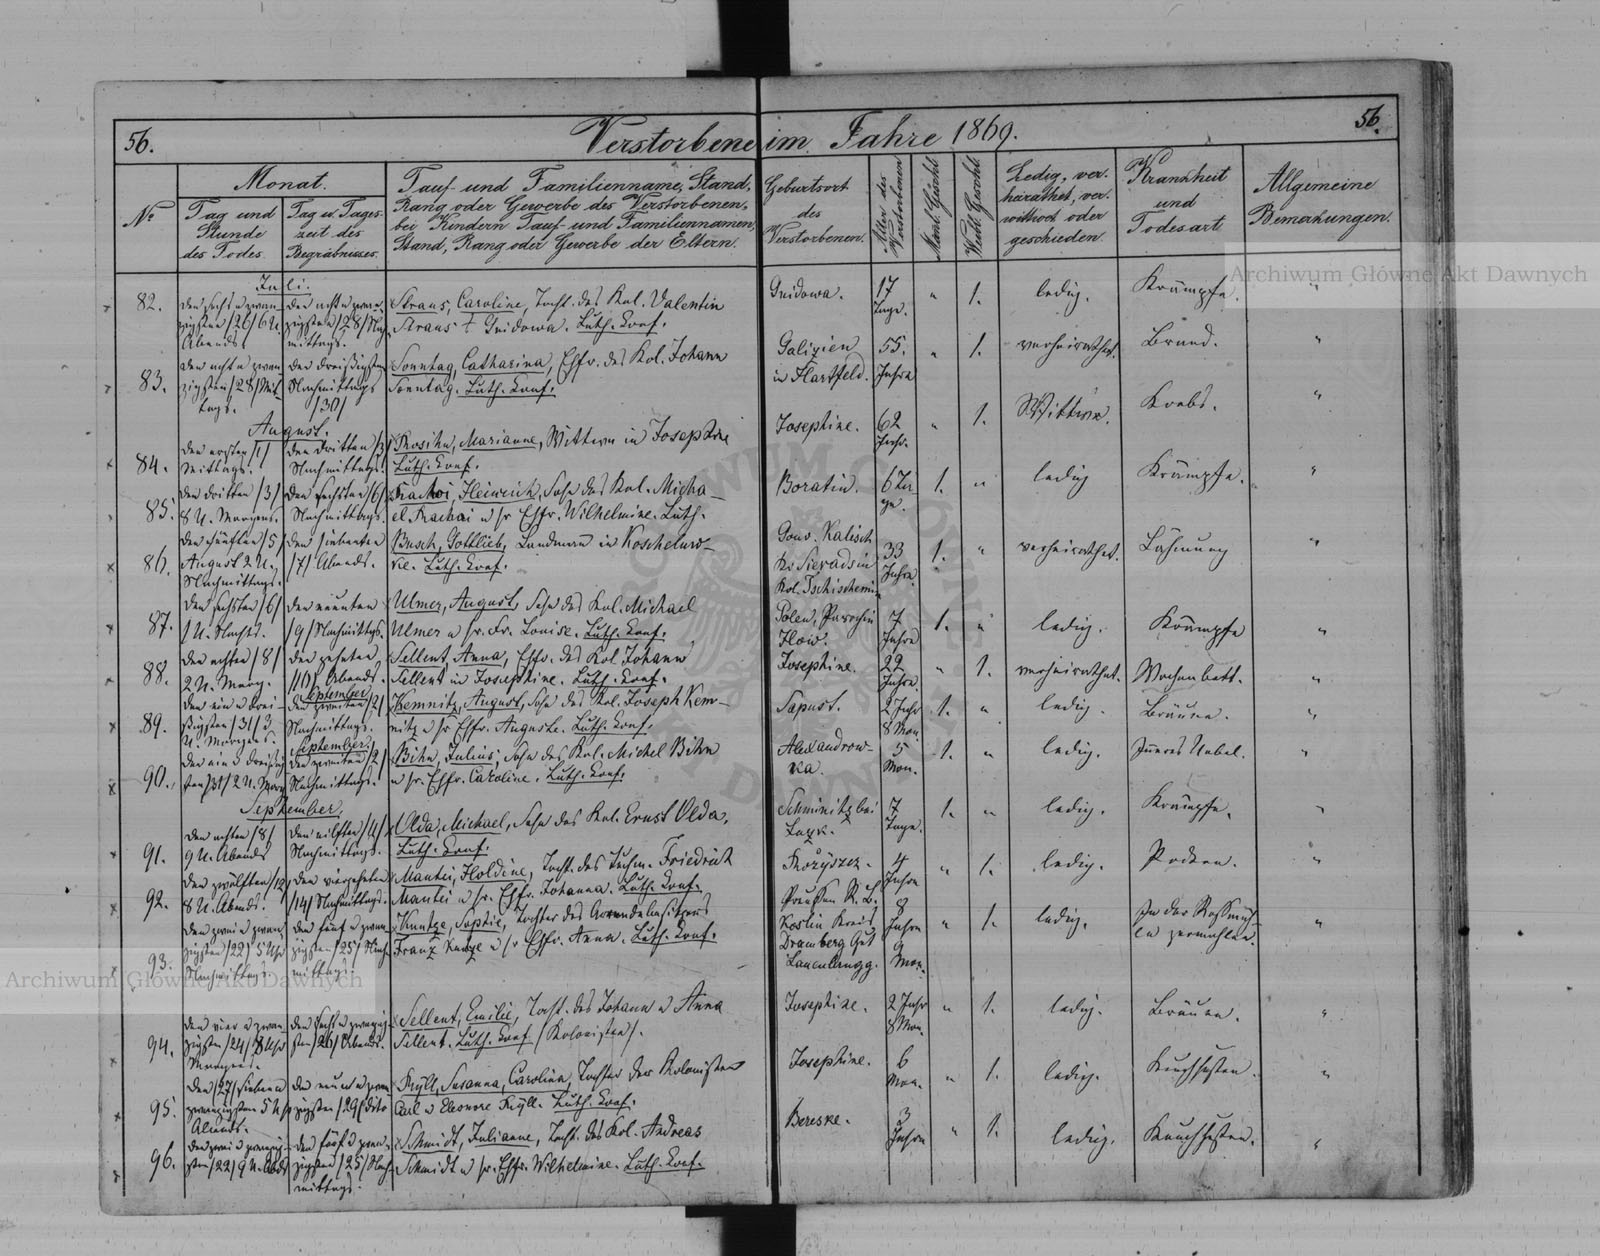 56.
Verstorbene im Jahre 1869.
56.
Monat.
No
Tag und Stunde des Todes.
Tag u. Tageszeit des Begräbnisses.
Tauf- und Familienname, Stand,
Rang oder Gewerbe des Verstorbenen,
bei Kindern Tauf- und Familiennamen,
Stand, Rang oder Gewerbe der Eltern.
Geburtsort
des
Verstorbenen.
Alter des Verstorbenen
Mänl. Geschlt
Weibl. Geschlt
Ledig, ver-
heirathet, ver-
wittwet oder
geschieden.
Krankheit
und
Todesart
Allgemeine
Bemerkungen.
Juli.
82.
den sechs u zwan-
zigsten /26/ 6 U.
Abends.
den acht u zwan-
zigsten /28/ Nach-
mittags.
Straus, Caroline, Tocht. des Kol. Valentin
Straus † Gnidowa. Luth. Conf.
Gnidowa.
17
Tage.
" 1.
ledig.
Krämpfe.
"
83.
den acht u zwan-
zigsten /28/ Mit-
tags.
den dreißigsten
Nachmittags
/30/
Sonntag, Catharina, Ehfr. des Kol. Johann
Sonntag. Luth. Conf.
Galizien
in Hartfeld.
55.
Jahre
" 1.
verheirathet.
Brand.
"
August.
84.
den ersten /1/
Mittags.
den dritten /3/
Nachmittags.
Marianne, Wittwe in Josephine
Luth. Conf.
Josephine.
62
Jahr.
" 1.
Wittwe.
Krebs.
"
85.
den dritten /3/
8 U. Morgens.
den sechsten /6/
Nachmittags.
Heinrich, Sohn des Kol. Micha-
el u sr Ehfr. Wilhelmine. Luth.
Boratin.
6 Ta
ge.
1. "
ledig
Krämpfe.
"
86.
den fünften /5/
August 2 U.
Nachmittags.
den siebenten
/7/ Abends.
Busch, Gottlieb, Landmann in Koschelow-
ke. Luth. Conf.
Gouv. Kalisch
Kr. Sieradsin
Kol. Tschischemin
33
Jahre.
1. "
verheirathet.
Lähmung
"
87.
den sechsten /6/
1 U. Nachts.
den neunten
/9/ Nachmittgs.
Ulmer, August, Sohn des Kol. Michael
Ulmer u sr. Fr. Louise. Luth. Conf.
Polen, Parochie
Ilow.
7
Jahre
1. "
ledig.
Krämpfe
"
88.
den achten /8/
2 U. Morg.
den zehnten
/10/ Abends.
Sellent, Anna, Ehfr. des Kol. Johann
Sellent in Josephine. Luth. Conf.
Josephine.
22
Jahre.
" 1.
verheirathet.
Wochenbett.
"
89.
den ein u drei-
ßigsten /31/ 3
U. Morgens.
September
den zweiten /2/
Nachmittags.
Kemnitz, August, Sohn des Kol. Joseph Kem-
nitz u sr Ehfr. Auguste. Luth. Conf.
Sapust.
2 Jahr
8 Mon.
1. "
ledig.
Bräune.
"
90.
den ein u dreißig
sten /31/ 2 U. Morg
September.
den zweiten /2/
Nachmittags.
Bihn, Julius, Sohn des Kol. Michel Bihn
u sr. Ehfr. Caroline. Luth. Conf.
Alexandrow-
ka.
5
Mon.
1. "
ledig.
Inneres Uebel.
"
September.
91.
den achten /8/
9 U. Abends
den eilften /11/
Nachmittags.
Olda, Michael, Sohn des Kol. Ernst Olda.
Luth. Conf.
Schminitz bei
Luzk.
7
Tage.
1. "
ledig.
Krämpfe.
"
92.
den zwölften /12/
8 U. Abends.
den vierzehnten
/14/ Nachmittags.
Mantei, Holdine, Tocht. des Tuchm. Friedrich
Mantei u sr. Ehfr. Johanna. Luth. Conf.
Rozyszcz.
4
Jahre
" 1.
ledig.
Pocken.
"
93.
den zwei u zwan-
zigsten /22/ 5 Uhr
Nachmittags.
den fünf u zwan-
zigsten /25/ Nach-
mittags.
Kuntze, Sophie, Tochter des Arrendebesitzers
Franz Kuntze u sr Ehfr. Anna. Luth. Conf.
Preußen R. B.
Köslin Kreis
Dramberg Gut
8
Jahre
9
Mon.
" 1.
ledig.
In der Roßmüh-
le zermahlen.
"
94.
den vier u zwan-
zigsten /24/ 8 Uhr
Morgens.
den sechs u zwanzig-
sten /26/ Abends.
Sellent, Emilie, Tocht. des Johann u Anna
Sellent. Luth. Conf /Kolonisten/.
Josephine.
2 Jahr
8 Mon.
" 1.
ledig.
Bräune.
"
95.
den /27/ sieben u
zwanzigsten 5 Uhr
Abends.
den neun u zwan
zigsten /29/ dito
Susanna, Carolina, Tochter der Kolonisten
Carl u Eleonore Luth. Conf.
Josephine.
6
Mon.
" 1.
ledig.
Keuchhusten.
"
96.
den zwei u zwanzig-
sten /22/ 9 U. Abds
den fünf u zwan-
zigsten /25/ Nach-
mittags.
Schmidt, Julianne, Tocht. des Kol. Andreas
Schmidt u sr. Ehfr. Wilhelmine. Luth. Conf.
Bereske.
3
Jahre
" 1.
ledig.
Keuchhusten.
"
Archiwum Główne Akt Dawnych
Archiwum Główne Akt Dawnych